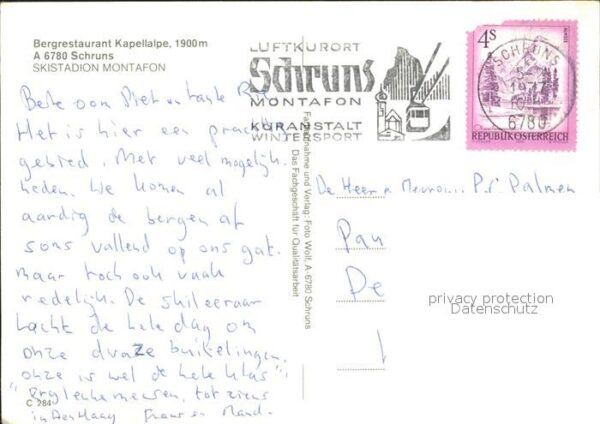 Bergrestaurant Kapellalpe, 1900m
A 6780 Schruns
SKISTADION MONTAFON
LUFTKURORT
Schruns
MONTAFON
KURANSTALT
WINTERSPORT
4S
SCHRUNS
6780
REPUBLIK ÖSTERREICH
Beste oom Piet en tante
Het is hier een prachtig
gebied. Met veel mogelijk
heden. We komen al
aardig de bergen af
soms vallend op ons gat.
maar toch ook vaak
redelijk. De skileeraar
lacht de hele dag om
onze dwaze buitelingen.
onze is wel de hele klas",
tot ziens
in Den Haag Frans en
De Heer n Mevrouw P.J. Palmen
De
Aufnahme und Verlag: Foto Wolf, A-6780 Schruns
Das Fachgeschäft für Qualitätsarbeit
privacy protection
Datenschutz
C 284